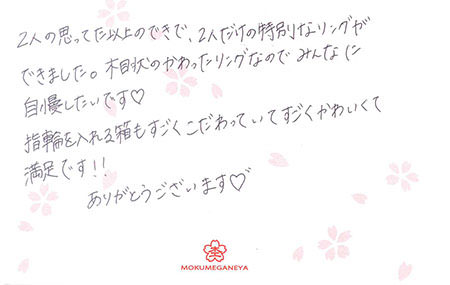 2人の思ってた以上のできで、2人だけの特別なリングが
できました。木目状のかわったリングなので みんなに
自慢したいです♡
指輪を入れる箱もすごくこだわっていてすごくかわいくて
満足です!!
ありがとうございます♡
MOKUMEGANEYA